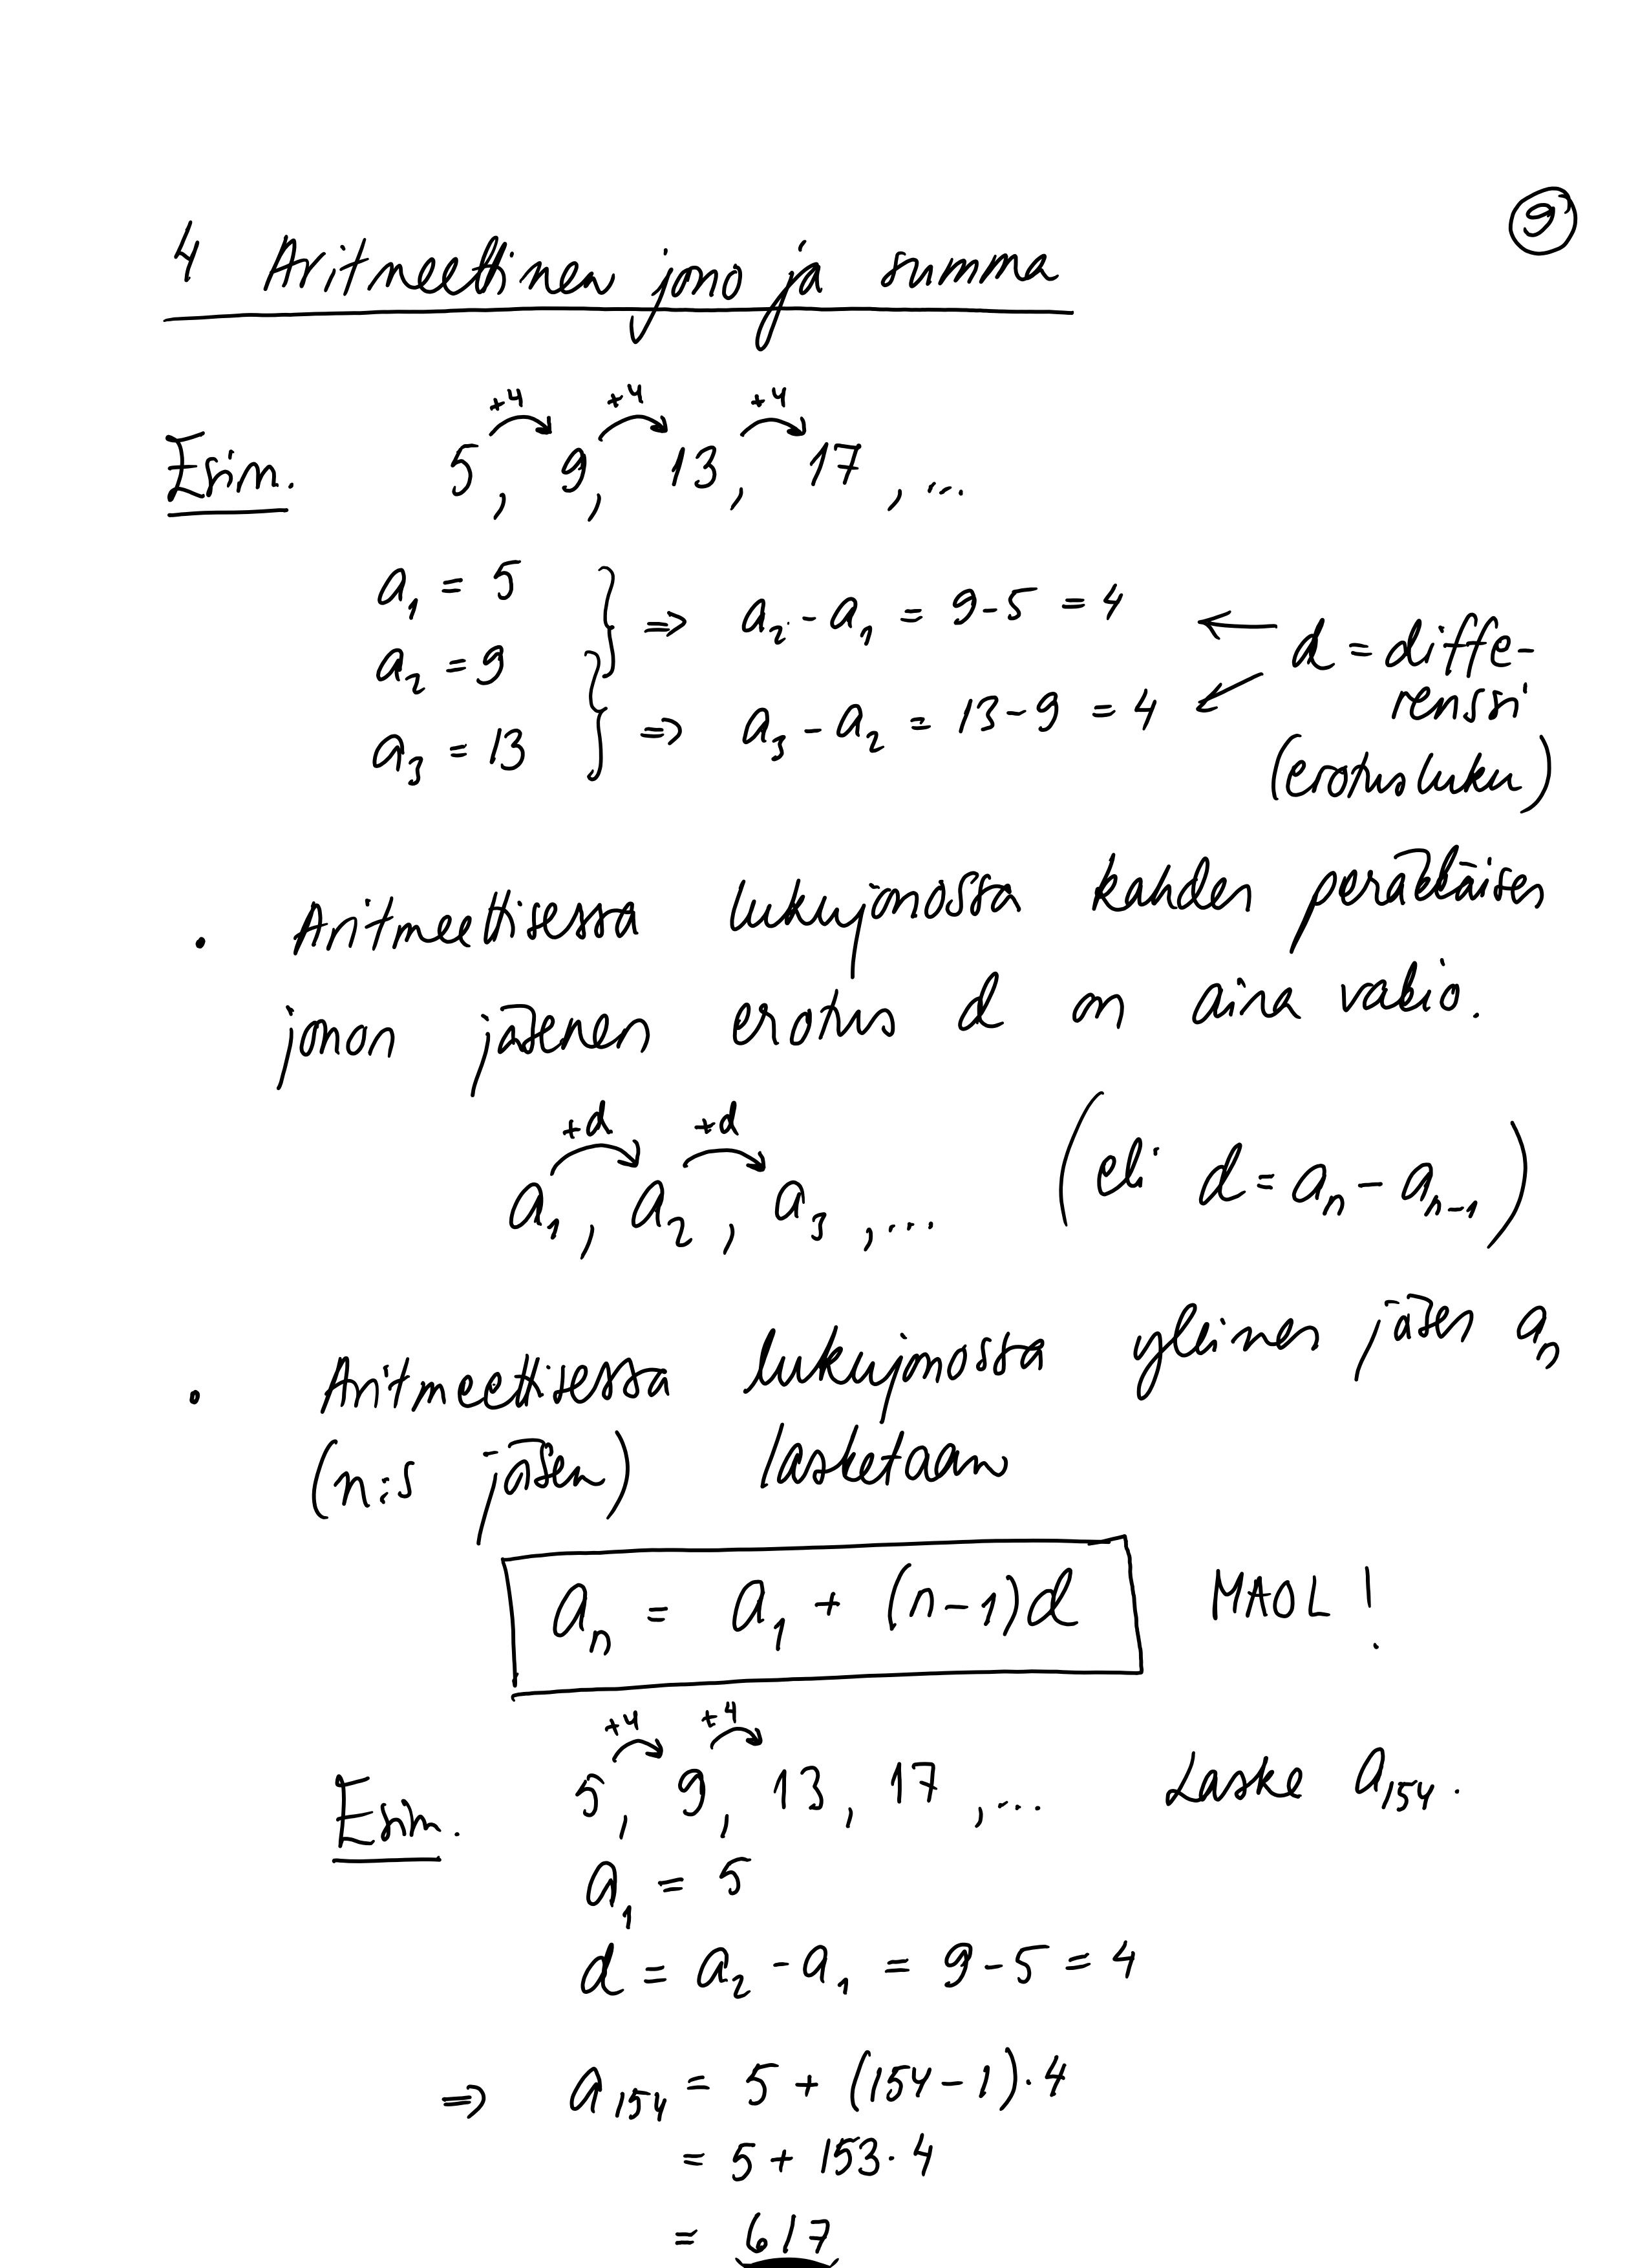 9
4 Aritmeettinen jono ja summa
+4 +4 +4
Esim. 5, 9, 13, 17, ...
a₁ = 5 } => a₂ - a₁ = 9-5 = 4 ← d = diffe-
a₂ = 9 renssi
a₃ = 13 } => a₃ - a₂ = 13-9 = 4 ← (erotusluku)
• Aritmeettisessa lukujonossa kahden peräkkäisen
jonon jäsenen erotus d on aina vakio.
+d +d
a₁, a₂, a₃, ... (eli d = aₙ - aₙ₋₁)
• Aritmeettisessa lukujonossa yleinen jäsen aₙ
(n:s jäsen) lasketaan
aₙ = a₁ + (n-1)d MAOL!
+4 +4
Esim. 5, 9, 13, 17, ... Laske a₁₅₄.
a₁ = 5
d = a₂ - a₁ = 9-5 = 4
=> a₁₅₄ = 5 + (154-1)·4
= 5 + 153·4
= 617